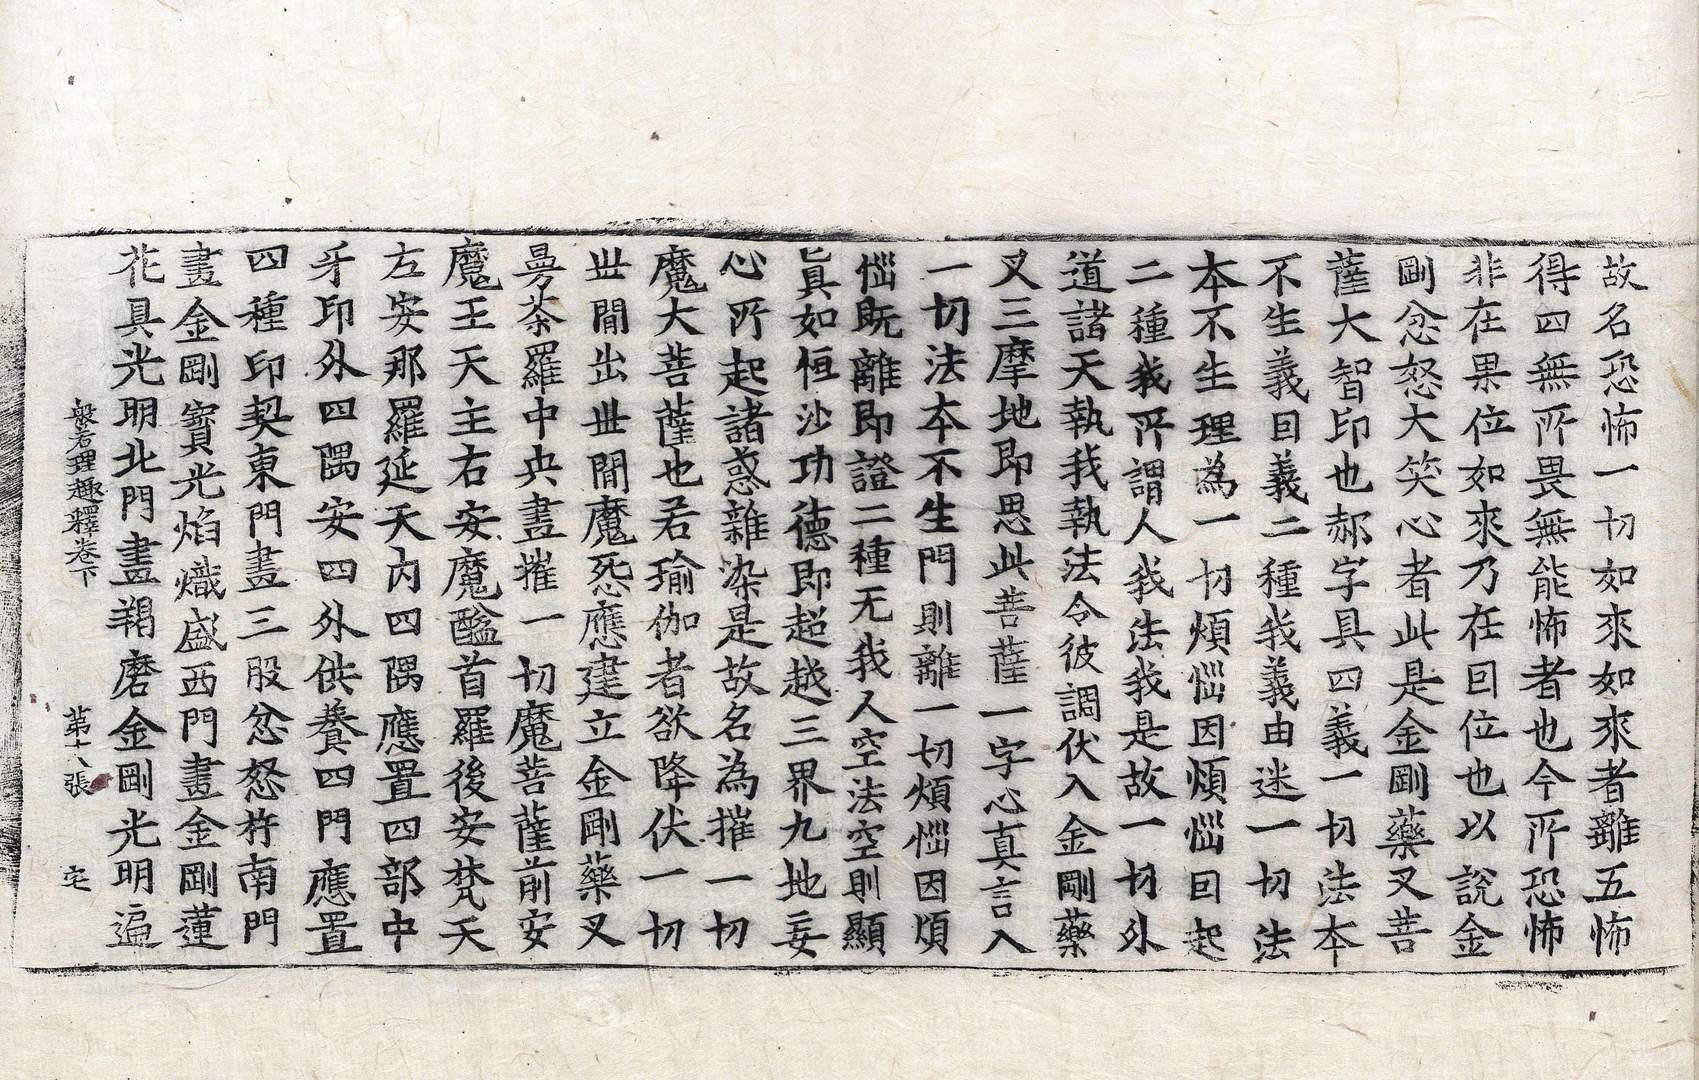 故名恐怖一切如來如來者離五怖
得四無所畏無能怖者也今所恐怖
非在果位如來乃在因位也以說金
剛忿怒大笑心者此是金剛藥叉菩
薩大智印也郝字具四義一切法本
不生義因義二種我義由迷一切法
本不生理為一切煩惱因煩惱因起
二種我所謂人我法我是故一切外
道諸天執我執法令彼調伏入金剛藥
叉三摩地即思此菩薩一字心真言入
一切法本不生門則離一切煩惱因煩
惱既離即證二種无我人空法空則顯
真如恒沙功德即超越三界九地妄
心所起諸惑雜染是故名為摧一切
魔大菩薩也若瑜伽者欲降伏一切
世間出世間魔怨應建立金剛藥叉
曼荼羅中央畫摧一切魔菩薩前安
魔王天主右安魔醯首羅後安梵天
左安那羅延天內四隅應置四部中
牙印外四隅安四外供養四門應置
四種印契東門畫三股忿怒杵南門
畫金剛寶光焰熾盛西門畫金剛蓮
花具光明北門畫羯磨金剛光明遍
般若理趣釋卷下 第十八張 宅